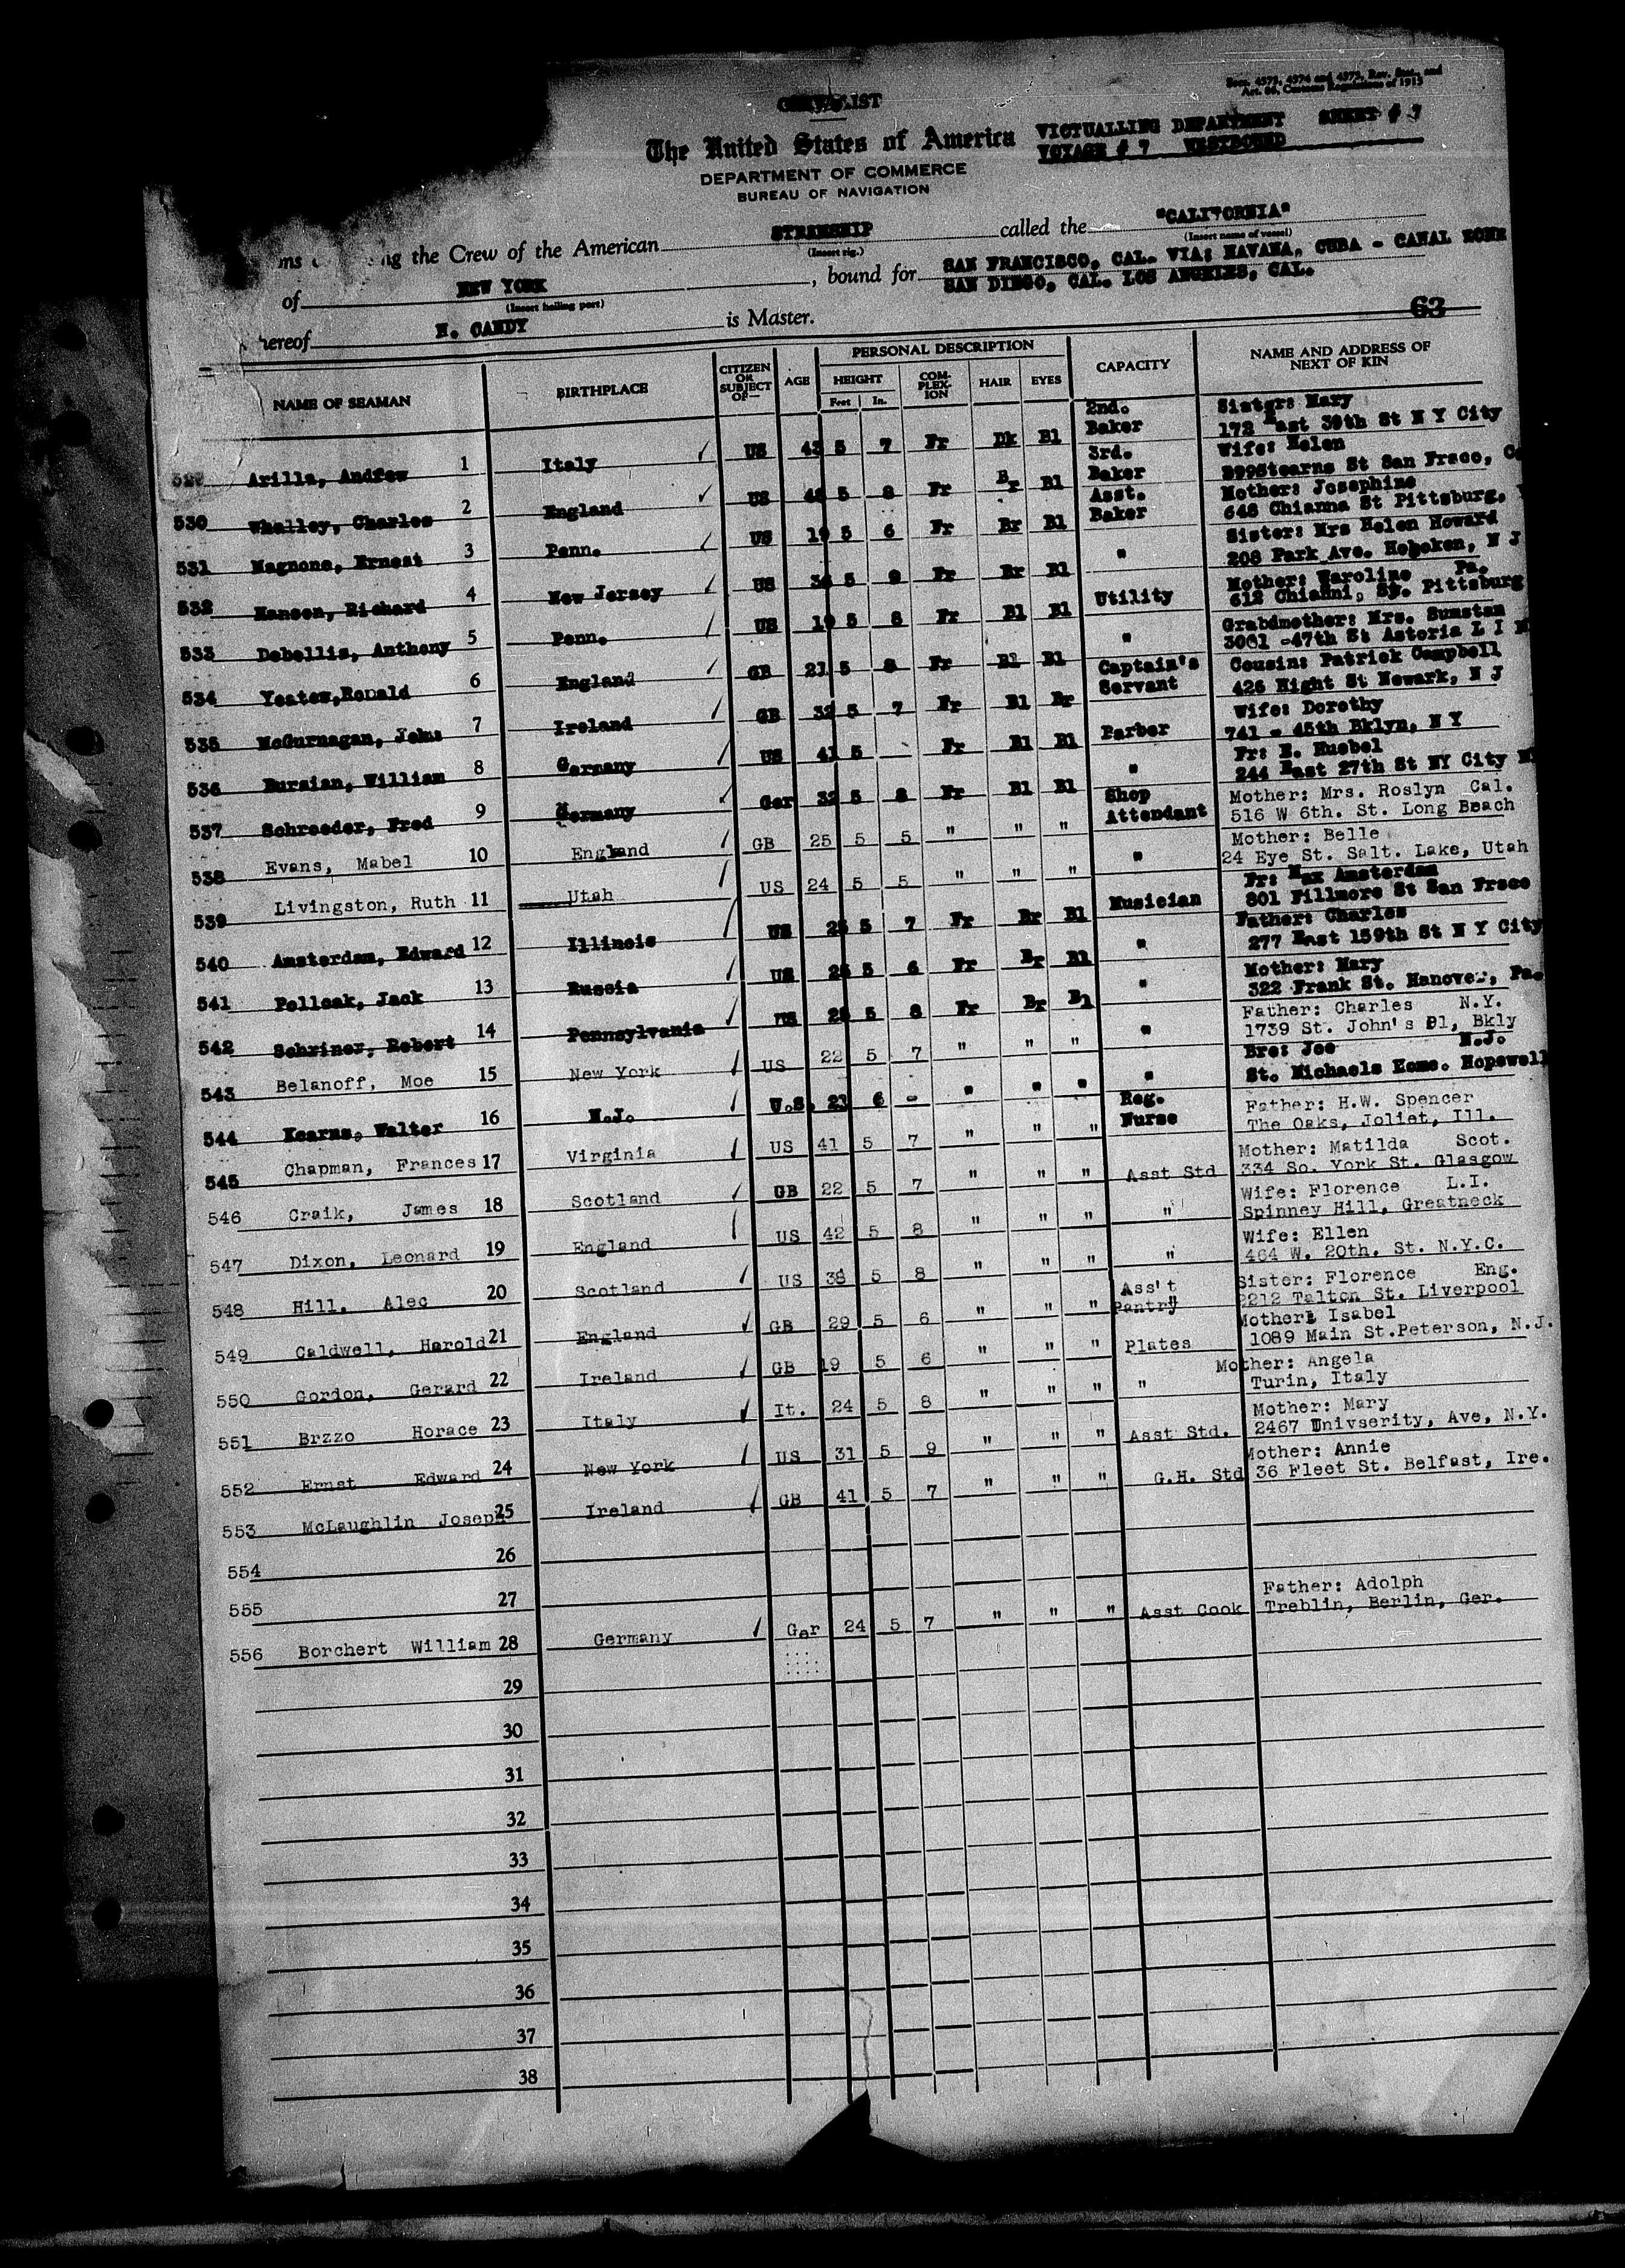 CREW LIST
Secs. 4573, 4574 and 4575, Rev. Stat., and
Art. 66, Customs Regulations of 1915
The United States of America
VICTUALLING DEPARTMENT SHEET # 7
VOYAGE # 7 WESTBOUND
DEPARTMENT OF COMMERCE
BUREAU OF NAVIGATION
the Crew of the American STEAMSHIP called the "CALIFORNIA"
(Insert rig.) (Insert name of vessel)
of NEW YORK, bound for SAN FRANCISCO, CAL. VIA: HAVANA, CUBA - CANAL ZONE
(Insert hailing port) SAN DIEGO, CAL. LOS ANGELES, CAL.
hereof H. CANDY is Master.
63
NAME OF SEAMAN BIRTHPLACE CITIZEN OR SUBJECT OF— AGE PERSONAL DESCRIPTION CAPACITY NAME AND ADDRESS OF NEXT OF KIN
HEIGHT COM-PLEX-ION HAIR EYES
Feet In.
2nd. Sister: Mary
529 Arilla, Andrew 1 Italy US 43 5 7 Fr Dk Bl Baker 172 East 39th St N Y City
3rd. Wife: Helen
530 Whalley, Charles 2 England US 5 8 Fr Br Bl Baker St San Frsco,
Asst. Mother: Josephine
531 Magnone, Ernest 3 Penn. US 19 5 6 Fr Br Bl Baker 648 Chianna St Pittsburg,
Sister: Mrs Helen Howard
532 Hansen, Richard 4 New Jersey US 5 9 Fr Br Bl " 208 Park Ave. Hoboken, N J
Mother: Waroline Pa.
533 Debellis, Anthony 5 Penn. US 19 5 8 Fr Bl Bl Utility 612 Chianni, St. Pittsburg
Grabdmother: Mrs. Sumstan
534 Yeates, Ronald 6 England GB 21 5 8 Fr Bl Bl " 3001 -47th St Astoria L I
Captain's Cousin: Patrick Campbell
535 McGurnagan, John 7 Ireland GB 32 5 7 Fr Bl Br Servant 426 Hight St Newark, N J
Wife: Dorothy
536 Bursian, William 8 Germany US 41 5 Fr Bl Bl Barber 741 - 45th Bklyn, N Y
Fr: E. Huebel
537 Schroeder, Fred 9 Germany Ger 32 5 8 Fr Bl Bl " 244 East 27th St NY City
Shop Mother: Mrs. Roslyn Cal.
538 Evans, Mabel 10 England GB 25 5 5 " " " Attendant 516 W 6th. St. Long Beach
Mother: Belle
539 Livingston, Ruth 11 Utah US 24 5 5 " " " " 24 Eye St. Salt. Lake, Utah
Fr: Max Amsterdam
540 Amsterdam, Edward 12 Illinois US 5 7 Fr Br Bl Musician 801 Fillmore St San Frsco
Father: Charles
541 Polloak, Jack 13 Russia US 5 6 Fr Br Bl " 277 East 159th St N Y City
Mother: Mary
542 Schriner, Robert 14 Pennsylvania US 5 8 Fr Br Bl " 322 Frank St. Hanover, Pa.
Father: Charles N.Y.
543 Belanoff, Moe 15 New York US 22 5 7 " " " " 1739 St. John's Pl, Bkly
Bro: Joe N.J.
544 Kearns, Walter 16 N.J. U.S. 21 6 - " " " " St. Michaels Home. Hopewell
Reg. Father: H.W. Spencer
545 Chapman, Frances 17 Virginia US 41 5 7 " " " Nurse The Oaks, Joliet, Ill.
Mother: Matilda Scot.
546 Craik, James 18 Scotland GB 22 5 7 " " " Asst Std 334 So. York St. Glasgow
Wife: Florence L.I.
547 Dixon, Leonard 19 England US 42 5 8 " " " " Spinney Hill, Greatneck
Wife: Ellen
548 Hill. Alec 20 Scotland US 38 5 8 " " " " 464 W. 20th. St. N.Y.C.
Ass't Sister: Florence Eng.
549 Caldwell, Harold 21 England GB 29 5 6 " " " Pantry 2212 Talton St. Liverpool
Mother: Isabel
550 Gordon, Gerard 22 Ireland GB 19 5 6 " " " Plates 1089 Main St. Peterson, N.J.
Mother: Angela
551 Brzzo Horace 23 Italy It. 24 5 8 " " " " Turin, Italy
Mother: Mary
552 Ernst Edward 24 New York US 31 5 9 " " " Asst Std. 2467 Univserity, Ave, N.Y.
Mother: Annie
553 McLaughlin Joseph 25 Ireland GB 41 5 7 " " " G.H. Std 36 Fleet St. Belfast, Ire.
554 26
555 27
Father: Adolph
556 Borchert William 28 Germany Ger 24 5 7 " " " Asst Cook Treblin, Berlin, Ger.
29
30
31
32
33
34
35
36
37
38